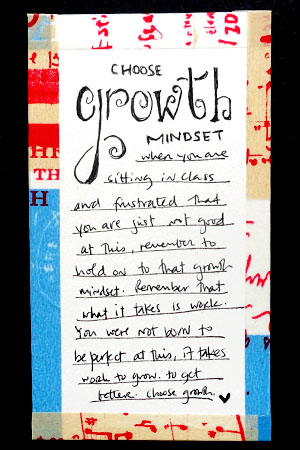 CHOOSE
growth
MINDSET
when you are
sitting in class
and frustrated that
you are just not good
at this, remember to
hold on to that growth
mindset. Remember that
what it takes is work.
You were not born to
be perfect at this, it takes
work to grow. to get
better. choose growth.